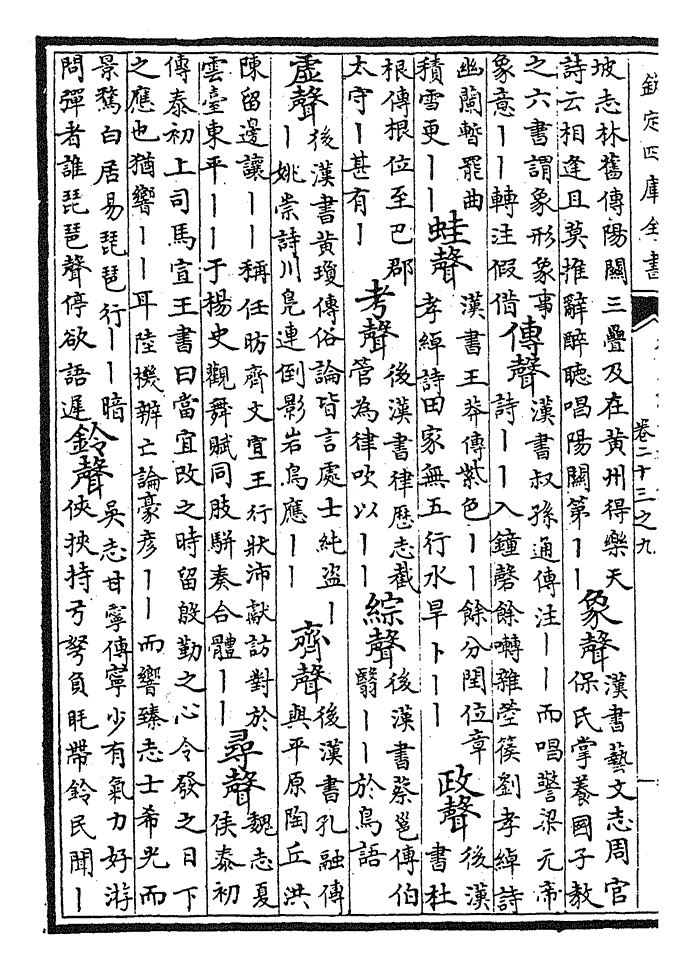 欽定四庫全書
卷二十三之九
坡志林舊傳陽關三疊及在黃州得樂天
詩云相逢且莫推辭醉聽唱陽關第丨丨
象聲
漢書藝文志周官
保氏掌養國子教
之六書謂象形象事
象意丨丨轉注假借
傳聲
漢書叔孫通傳注丨丨而唱警梁元帝
詩丨丨入鐘磬餘囀雜箜篌劉孝綽詩
幽蘭暫罷曲
積雪更丨丨
蛙聲
漢書王莽傳紫色丨丨餘分閏位章
孝綽詩田家無五行水旱卜丨丨
政聲
後漢
書杜
根傳根位至巴郡
太守丨甚有丨
考聲
後漢書律歷志截
管為律吹以丨丨
綜聲
後漢書蔡邕傳伯
翳丨丨於鳥語
虛聲
後漢書黃瓊傳俗論皆言處士純盜丨
丨姚崇詩川鳧連倒影岩鳥應丨丨
齊聲
後漢書孔融傳
與平原陶丘洪
陳留邊讓丨丨稱任昉齊文宣王行狀沛獻訪對於
雲臺東平丨丨于楊史觀舞賦同肢駢奏合體丨丨
尋聲
魏志夏
侯泰初
傳泰初上司馬宣王書曰當宜改之時留殷勤之心令發之日下
之應也猶響丨丨耳陸機辨亡論豪彦丨丨而響臻志士希光而
景騖白居易琵琶行丨丨暗
問彈者誰琵琶聲停欲語遲
鈴聲
吳志甘寧傳寧少有氣力好游
俠挾持弓弩負毦帶鈴民聞丨